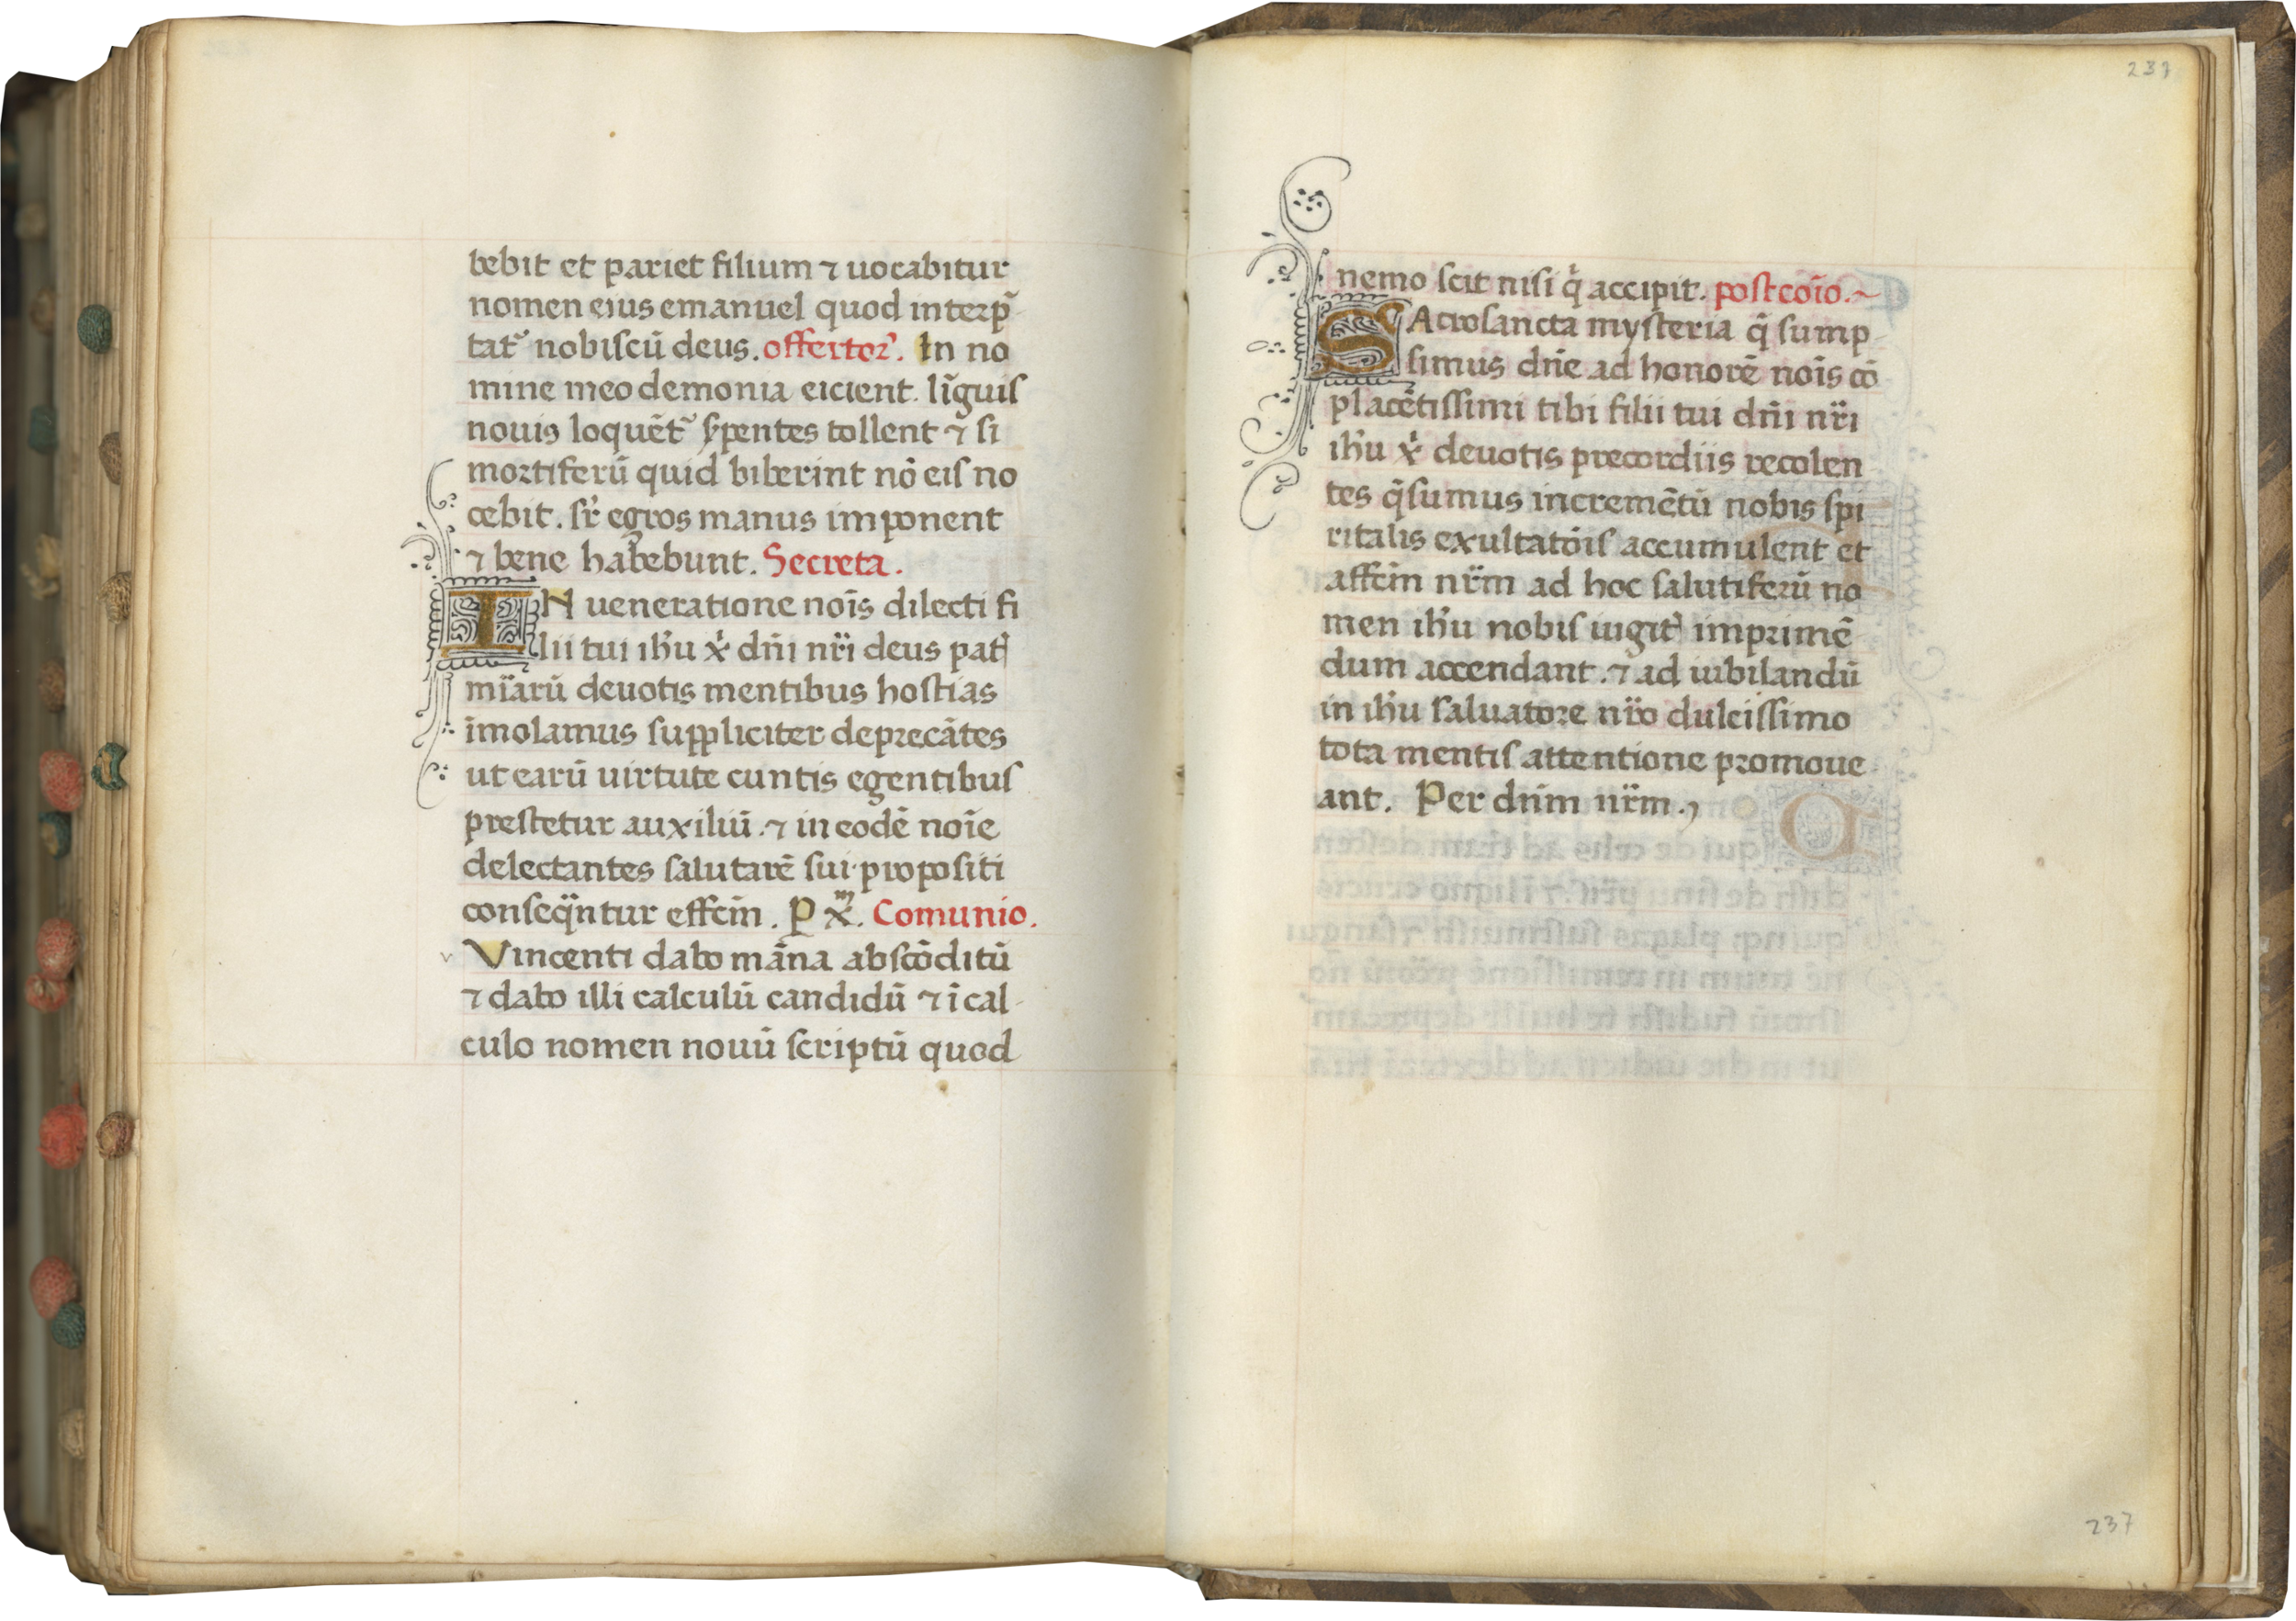 bebit et pariet filium ⁊ uocabitur
nomen eius emanuel quod interp̃
tat᷑ nobiscũ deus. offertor᷑. In no
mine meo demonia eicient. lĩguis
nouis loquẽt᷑ s̃pentes tollent ⁊ si
mortiferũ quid biberint nõ eis no
cebit. sr̃ egros manus imponent
⁊ bene habebunt. Secreta.
IN ueneratione noĩs dilecti fi
lii tui ih̃u xp̃i dñi nr̃i deus pat̃
mĩarũ deuotis mentibus hostias
ĩmolamus suppliciter deprecãtes
ut earũ uirtute cuntis egentibus
prestetur auxiliũ. ⁊ in eodẽ noĩe
delectantes salutarẽ sui propositi
conseq̃ntur effcm̃. Ꝑ x̃. Comunio.
Vincenti dabo mãna abscõditũ
⁊ dabo illi calculũ candidũ ⁊ ĩ cal
culo nomen nouũ scriptũ quod
237
nemo scit nisi q̇ accipit. postcoĩo.~
SAcrosancta mysteria q̃ sump
simus dñe ad honorẽ noĩs cõ
placẽtissimi tibi filii tui dñi nr̃i
ih̃u x̃ deuotis precordiis recolen
tes q̃sumus incremẽtũ nobis spi
ritalis exultatõis accumulent et
affcm̃ nr̃m ad hoc salutiferũ no
men ih̃u nobis iugit̃ imprimẽ
dum accendant. ⁊ ad iubilandũ
in ih̃u saluatore nr̃o dulcissimo
tota mentis attentione promoue
ant. Per dñm nr̃m.
237